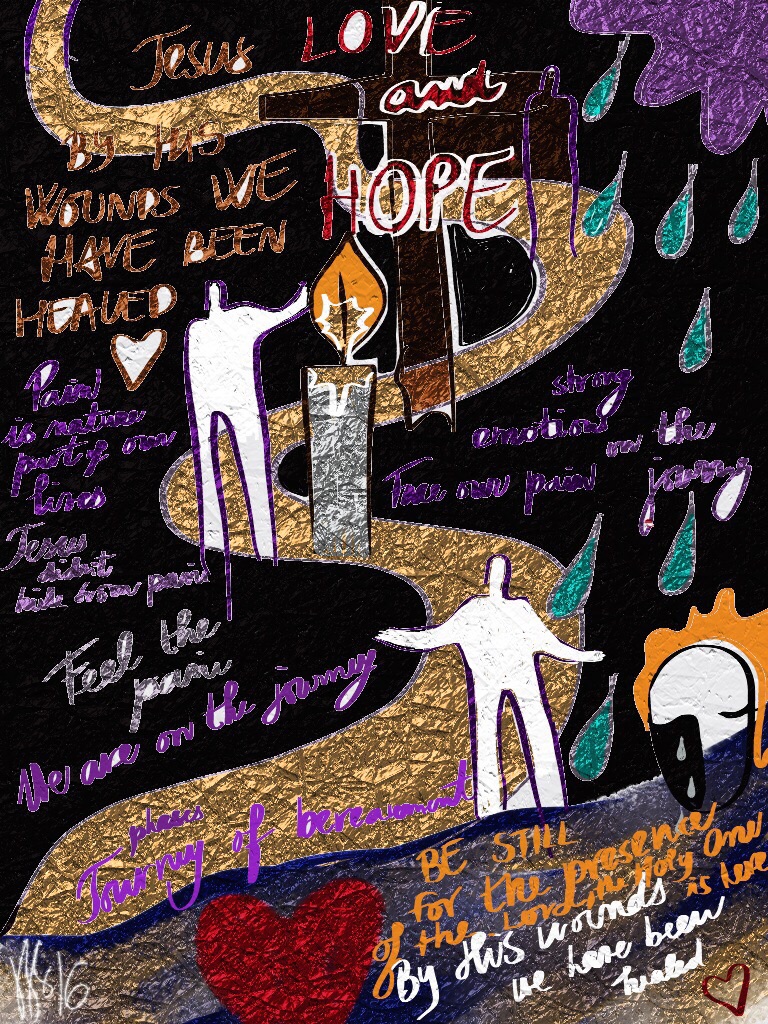 LOVE
and
HOPE
Jesus
BY HIS
WOUNDS WE
HAVE BEEN
HEALED
Pain
is nature
part of our
lives
Jesus
didn't
hide from pain
Feel the
pain
We are on the journey
strong
emotions on the
journey
Face our pain
phases
Journey of bereavement
BE STILL
for the presence
of the Lord, the Holy One
is here
By His wounds
we have been
healed